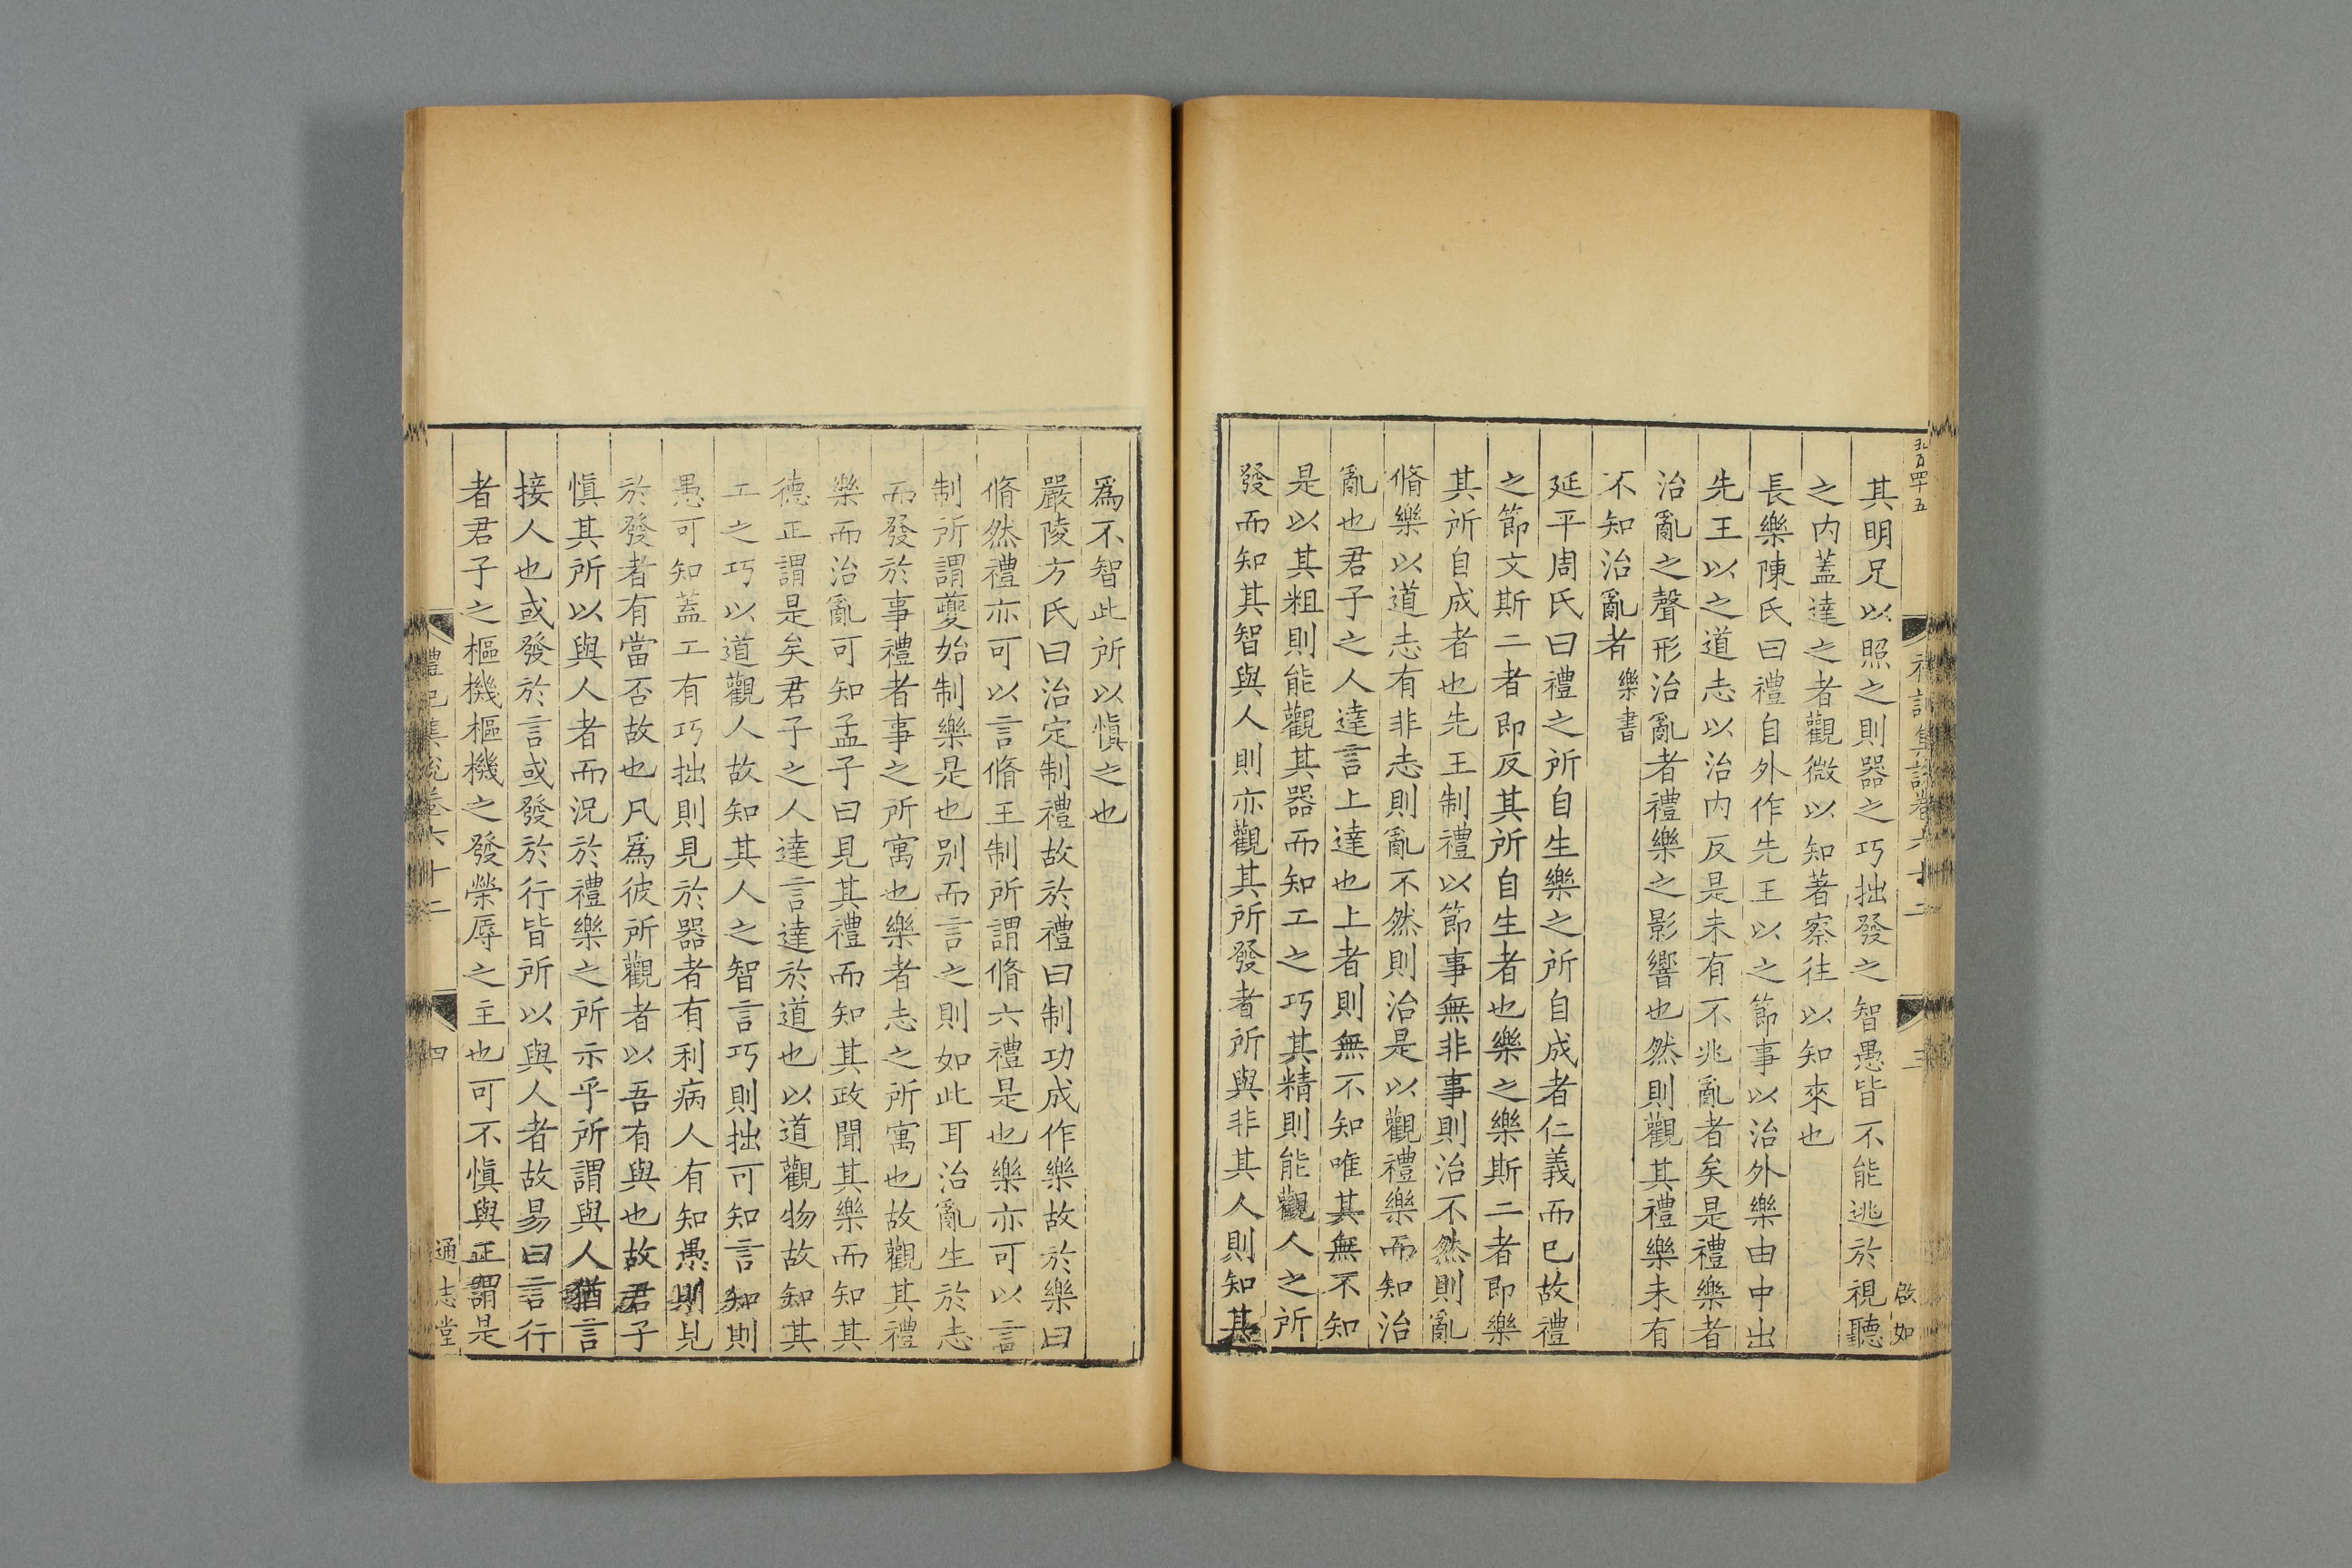 其明足以照之則器之巧拙發之智愚皆不能逃於視聽
之内蓋達之者觀微以知著察往以知來也
長樂陳氏曰禮自外作先王以之節事以治外樂由中出
先王以之道志以治内反是未有不兆亂者矣是禮樂者
治亂之聲形治亂者禮樂之影響也然則觀其禮樂未有
不知治亂者樂書
延平周氏曰禮之所自生樂之所自成者仁義而已故禮
之節文斯二者即反其所自生者也樂之樂斯二者即樂
其所自成者也先王制禮以節事無非事則治不然則亂
脩樂以道志有非志則亂不然則治是以觀禮樂而知治
亂也君子之人達言上達也上者則無不知唯其無不知
是以其粗則能觀其器而知工之巧其精則能觀人之所
發而知其智與人則亦觀其所發者所與非其人則知其
爲不智此所以愼之也
嚴陵方氏曰治定制禮故於禮曰制功成作樂故於樂曰
脩然禮亦可以言脩王制所謂脩六禮是也樂亦可以言
制所謂夔始制樂是也别而言之則如此耳治亂生於志
而發於事禮者事之所寓也樂者志之所寓也故觀其禮
樂而治亂可知孟子曰見其禮而知其政聞其樂而知其
德正謂是矣君子之人達言達於道也以道觀物故知其
工之巧以道觀人故知其人之智言巧則拙可知言知則
愚可知蓋工有巧拙則見於器者有利病人有知愚則見
於發者有當否故也凡爲彼所觀者以吾有與也故君子
愼其所以與人者而況於禮樂之所示乎所謂與人猶言
接人也或發於言或發於行皆所以與人者故易曰言行
者君子之樞機樞機之發榮辱之主也可不愼與正謂是
禮記集說卷六十二
四
通志堂